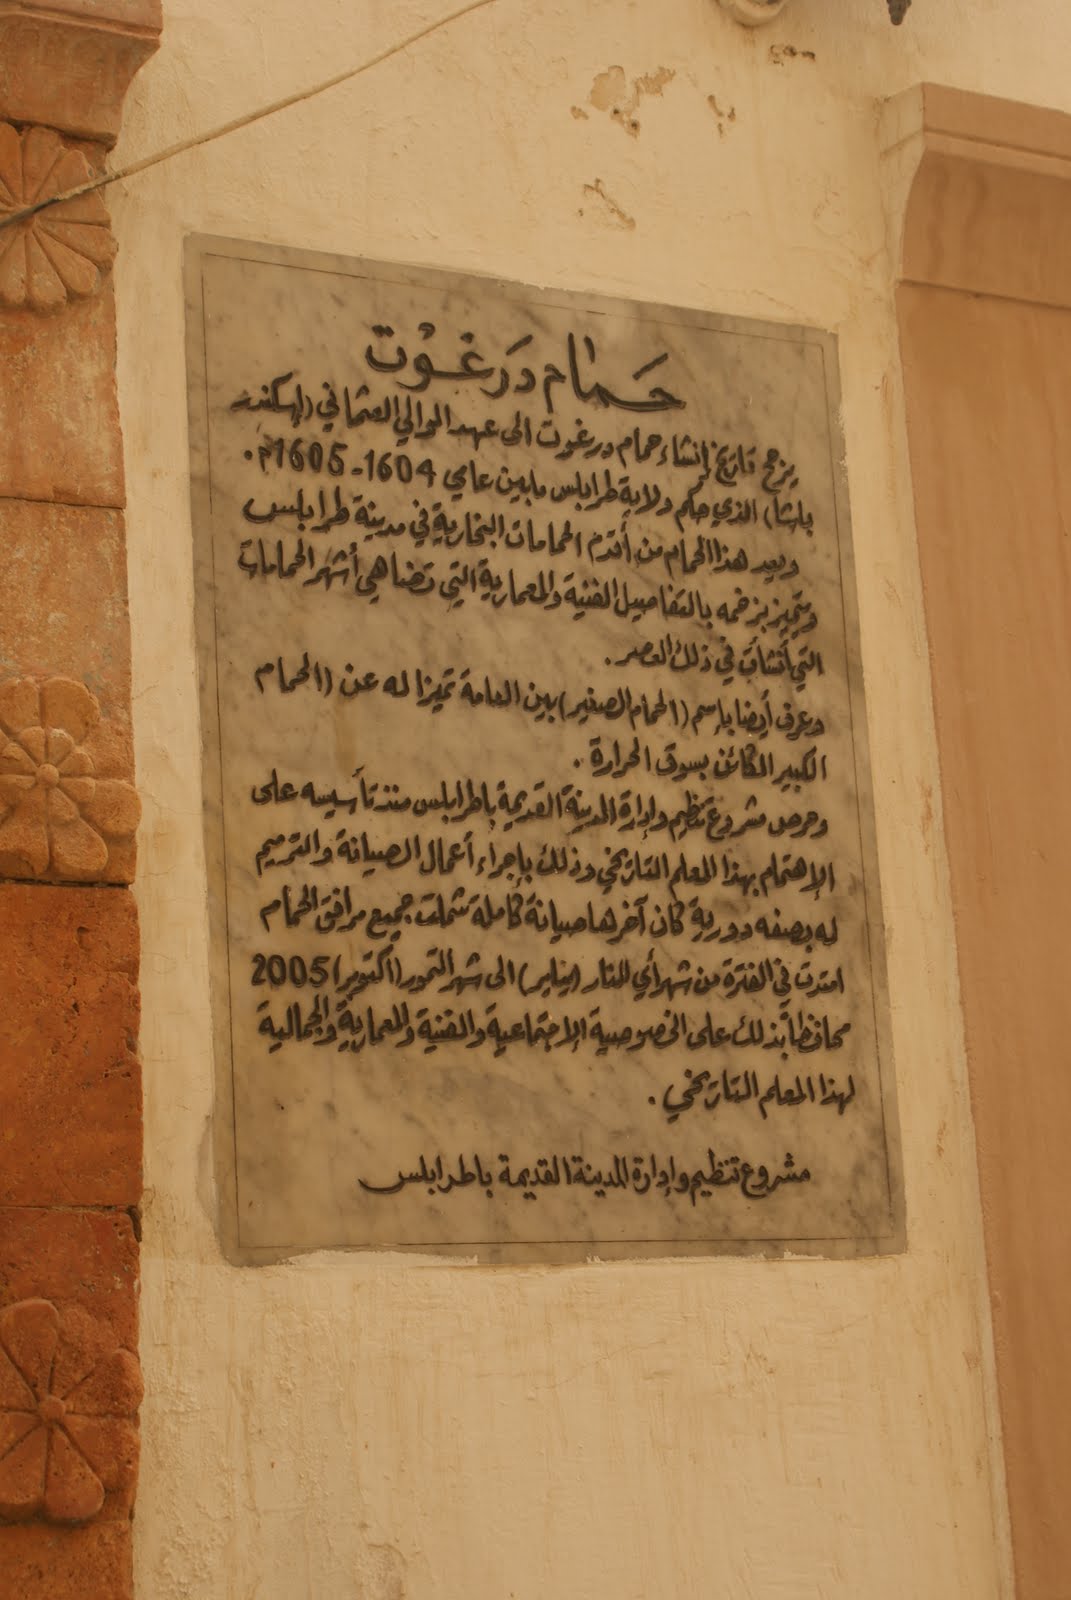 حمام دَرغوْت
يرجع تاريخ إنشاء حمام درغوت الى عهد الوالي العثماني (إسكندر
باشا) الذي حكم ولاية طرابلس مابين عامي 1604-1605م.
ويعد هذا الحمام من أقدم الحمامات البخارية في مدينة طرابلس
ويتميز بزخمه بالتفاصيل الفنية والمعمارية التي تضاهي أشهر الحمامات
التي أنشأت في ذلك العصر.
وعرف أيضا بإسم (الحمام الصغير) بين العامة تميزا له عن (الحمام
الكبير الكائن بسوق الحرارة.
وحرص مشروع تنظيم وإدارة المدينة القديمة باطرابلس منذ تأسيسه على
الإهتمام بهذا المعلم التاريخي وذلك بإجراء أعمال الصيانة والترميم
له بصفه دورية كان آخرها صيانة كاملة شملت جميع مرافق الحمام
امتدت في الفترة من شهر أي النار (يناير) الى شهر التمور (أكتوبر) 2005
محافظا بذلك على الخصوصية الإجتماعية والفنية والمعمارية والجمالية
لهذا المعلم التاريخي.
مشروع تنظيم وإدارة المدينة القديمة باطرابلس